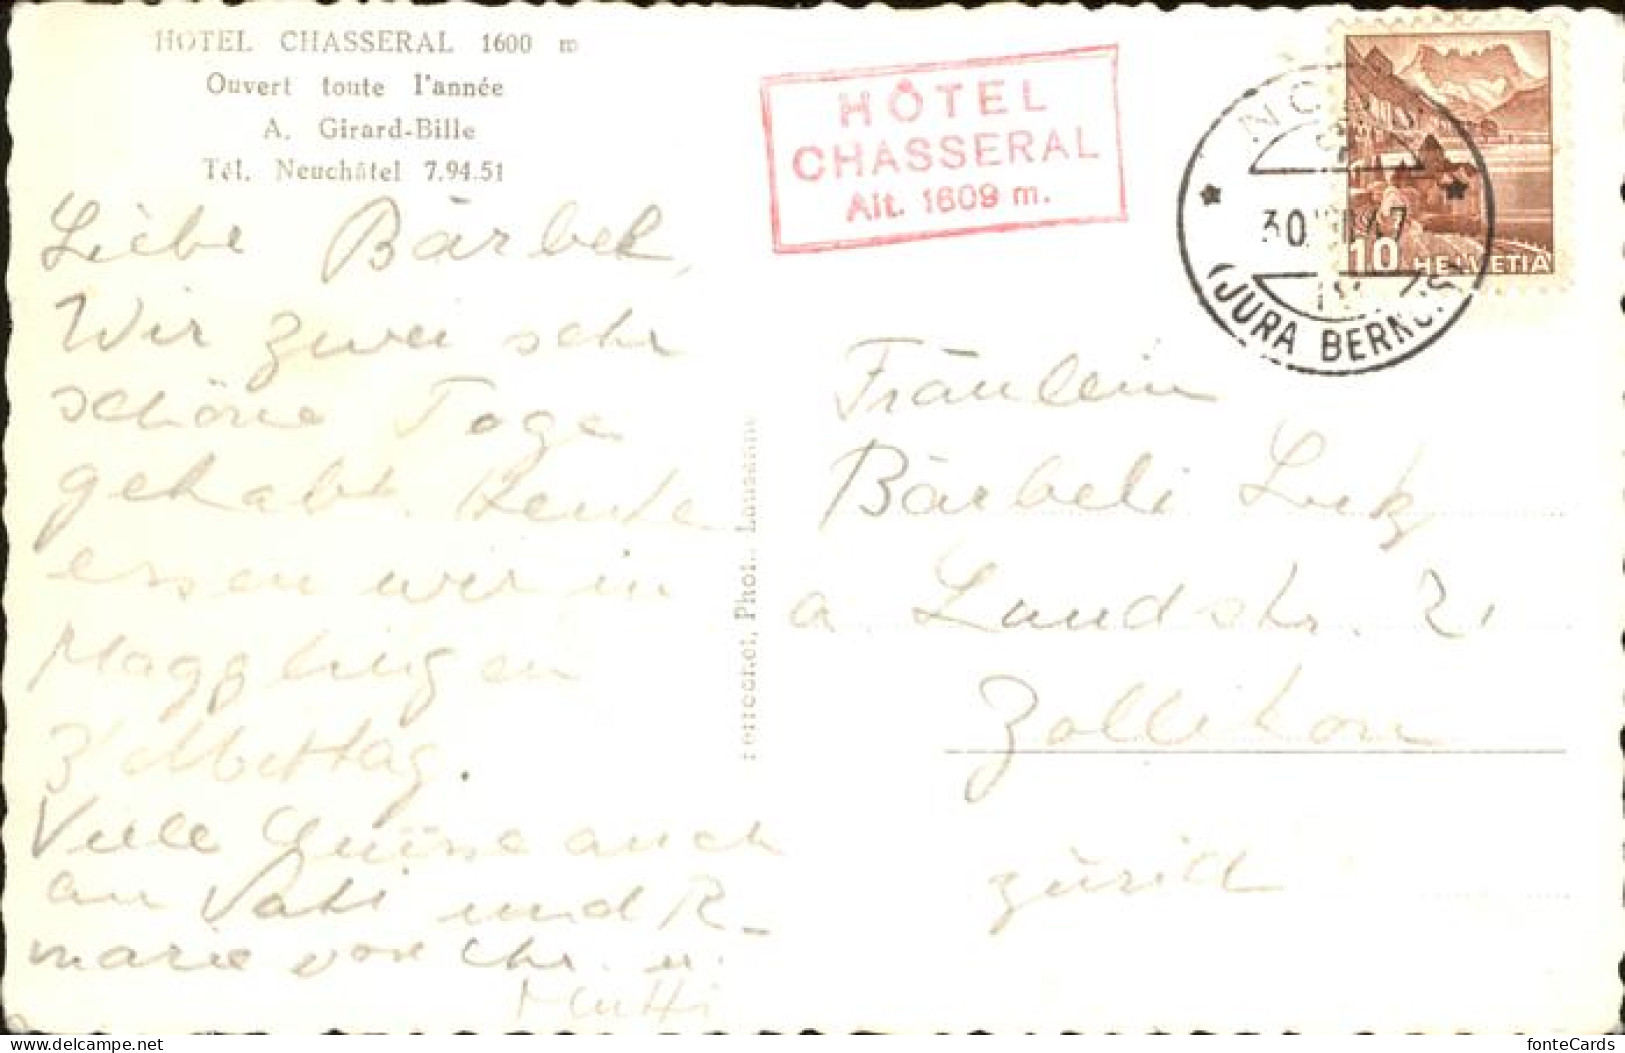 HOTEL CHASSERAL 1600 m
Ouvert toute l'année
A. Girard-Bille
Tél. Neuchâtel 7.94.51
HÔTEL
CHASSERAL
Alt. 1609 m.
30 47
(JURA BERNOIS)
10 HELVETIA
Liebe Bärbel,
Wir zwei sehr
schöne Tage
gehabt. Heute
essen wir in
Magglingen
z' Mittag.
Viele Grüsse auch
an Vati und R-
marie von Chr. u.
Mutti
Perrochet, Phot., Lausanne
Fräulein
Bärbeli
a. Landstr. 21
Zollikon
Zürich
delcampe.net
fonteCards